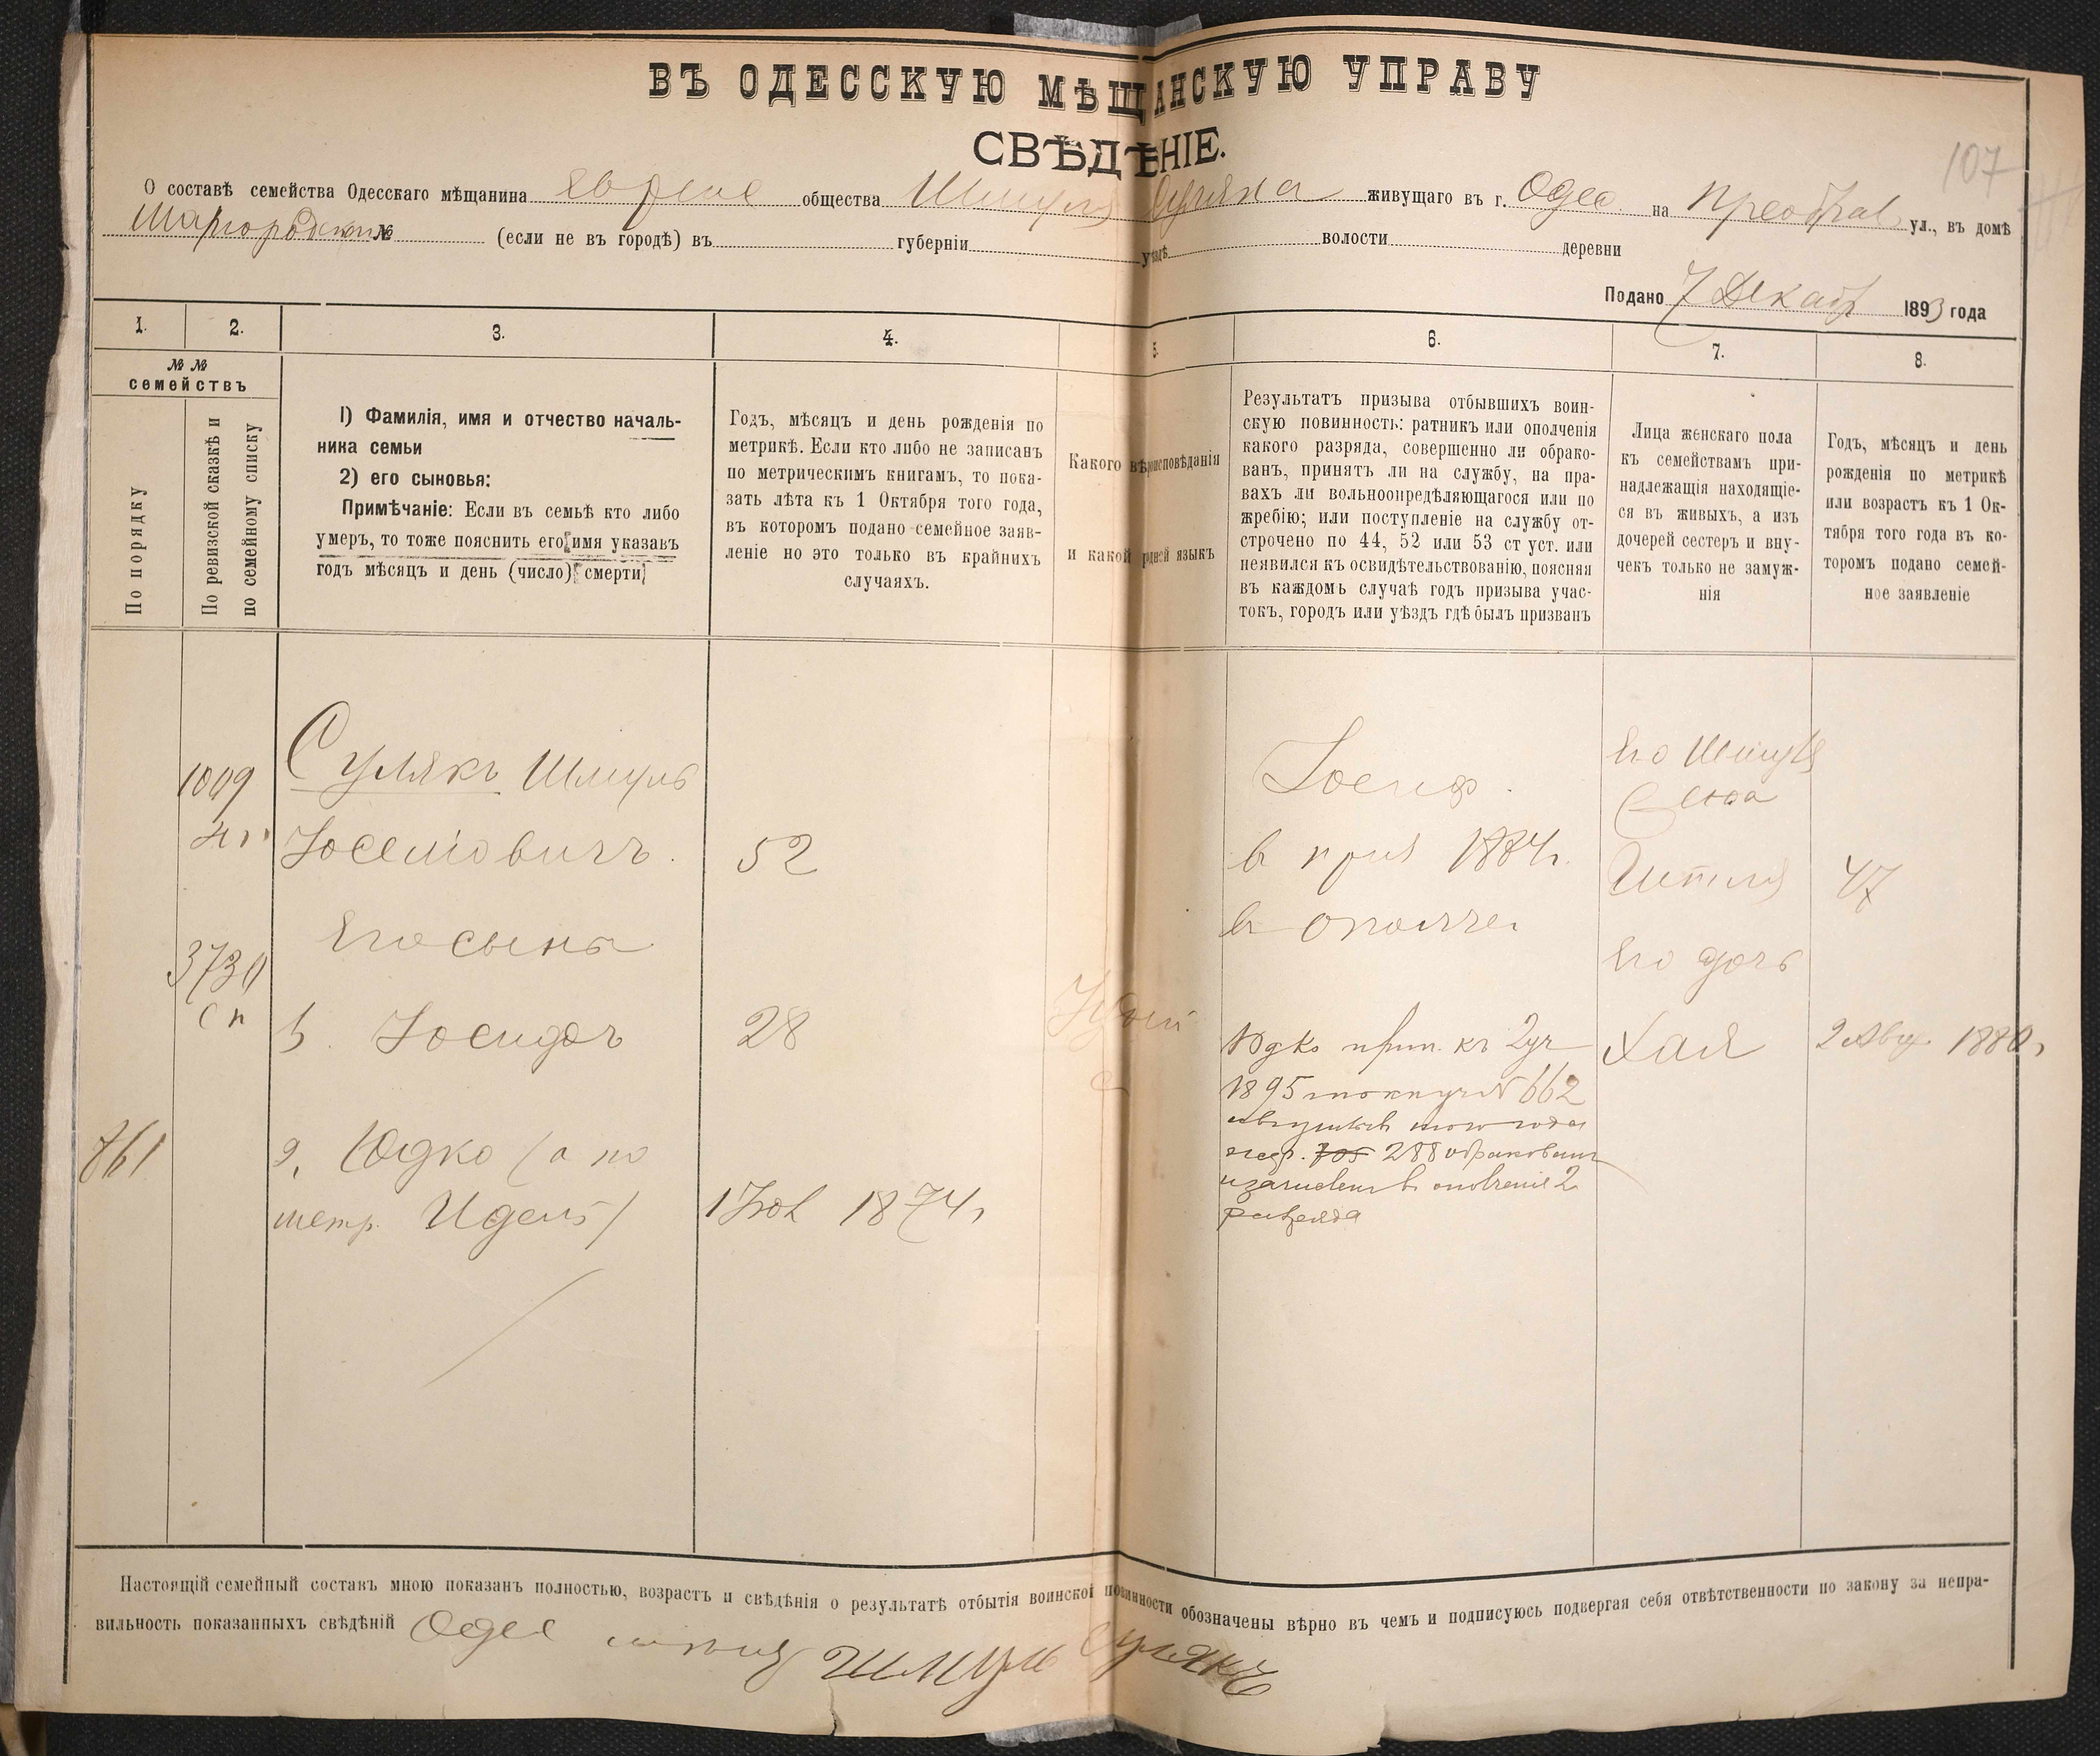 ВЪ ОДЕССКУЮ МѢЩАНСКУЮ УПРАВУ
СВѢДѢНІЕ.
107
О составѣ семейства Одесскаго мѣщанина общества Шмуля Суляка живущаго въ г. Одес на Преображ ул., въ домѣ
№ (если не въ городѣ) въ губерніи уѣздѣ волости деревни
Подано 7 Декаб 1893 года
1. 2. 3. 4. 5. 6. 7. 8.
№ № семействъ
По порядку
По ревизской сказкѣ и
по семейному списку
1) Фамилія, имя и отчество началь-
ника семьи
2) его сыновья:
Примѣчаніе: Если въ семьѣ кто либо
умеръ, то тоже пояснить его имя указавъ
годъ мѣсяцъ и день (число) смерти
Годъ, мѣсяцъ и день рожденія по
метрикѣ. Если кто либо не записанъ
по метрическимъ книгамъ, то пока-
зать лѣта къ 1 Октября того года,
въ которомъ подано семейное заяв-
леніе но это только въ крайнихъ
случаяхъ.
Какого вѣроисповѣданія
и какой родной языкъ
Результатъ призыва отбывшихъ воин-
скую повинность: ратникъ или ополченія
какого разряда, совершенно ли обрако-
ванъ, принятъ ли на службу, на пра-
вахъ ли вольноопредѣляющагося или по
жребію; или поступленіе на службу от-
строчено по 44, 52 или 53 ст уст. или
неявился къ освидѣтельствованію, поясняя
въ каждомъ случаѣ годъ призыва учас-
токъ, городъ или уѣздъ гдѣ былъ призванъ
Лица женскаго пола
къ семействамъ при-
надлежащія находящіе-
ся въ живыхъ, а изъ
дочерей сестеръ и вну-
чекъ только не замуж-
нія
Годъ, мѣсяцъ и день
рожденія по метрикѣ
или возрастъ къ 1 Ок-
тября того года въ ко-
торомъ подано семей-
ное заявленіе
1009
Сулякъ Шмуль
Іоселіовичъ. 52
Его сыны
3730
сп
Іосифъ 28
861
2, Юдко (а по
метр. Идель) 1874г
Іосиф.
в приз 1884г.
в ополче
Юдко прип. къ 2 уч
1895 № 662
288 обракованъ
и зачисленъ в ополченіе 2
разряда
Его Шмуля
Гитля 47
его дочь
Хая 2 Авг. 1880г
Настоящій семейный составъ мною показанъ полностью, возрастъ и свѣдѣнія о результатѣ отбытія воинской повинности обозначены вѣрно въ чемъ и подписуюсь подвергая себя отвѣтственности по закону за непра-
вильность показанныхъ свѣдѣній Одес Шмуль Сулякъ